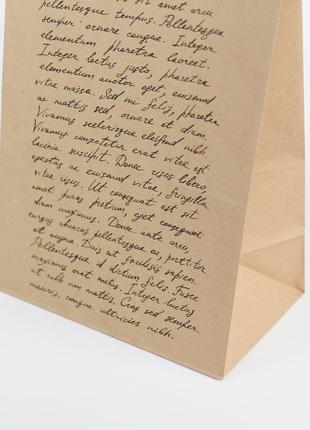 sit amet arcu
pellentesque tempus. Pellentesque
semper ornare congue. Integer
elementum pharetra laoreet.
Integer lectus justo, pharetra
elementum auctor eget, euismod
vitae massa. Sed mi felis, pharetra
ac mattis sed, ornare et diam.
Vivamus scelerisque eleifend nibh.
Vivamus consectetur erat vitae est
lacinia suscipit. Donec risus libero,
egestas ac euismod vitae, fringilla
vitae risus. Ut consequat est sit
amet purus pretium, eget consequat
diam maximus. Donec ante arcu,
cursus rhoncus pellentesque eu, porttitor
et augue. Duis ut facilisis sapien.
Pellentesque id dictum felis. Fusce
maximus erat metus. Integer luctus
ut nibh non mattis. Cras sed semper
mauris, congue ultricies nibh.